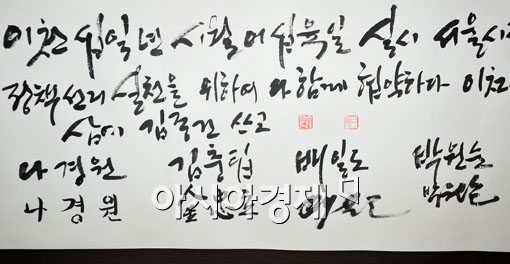 이천 십일 년 시월 이십육일 실시 서울시
정책선거 실천을 위하여 다함께 협약하다 이천
김종건 쓰고
나경원 김충립 배일도 박원순
나경원 배일도 박원순
아시아경제